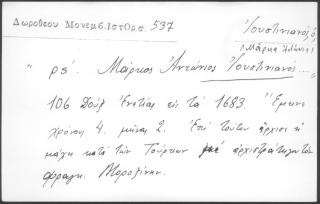 Δωροθεου Μονεμβ. Ιστ Ορσ. 537
Ἰουστινιανός ὁ,
(Μάρκο Ἀντώνιος)
" ρς΄. Μάρκος Ἀντώνιος Ἰουστινιανός ..."
106 Δούξ Ενετίας εις τα 1683. "Έμεινε
χρόνους 4. μήνας 2. Επί τούτου άρχισε η
μάχη κατά των Τούρκων με αρχιστράτηγον τον
φραγκ. Μοροζίνην.